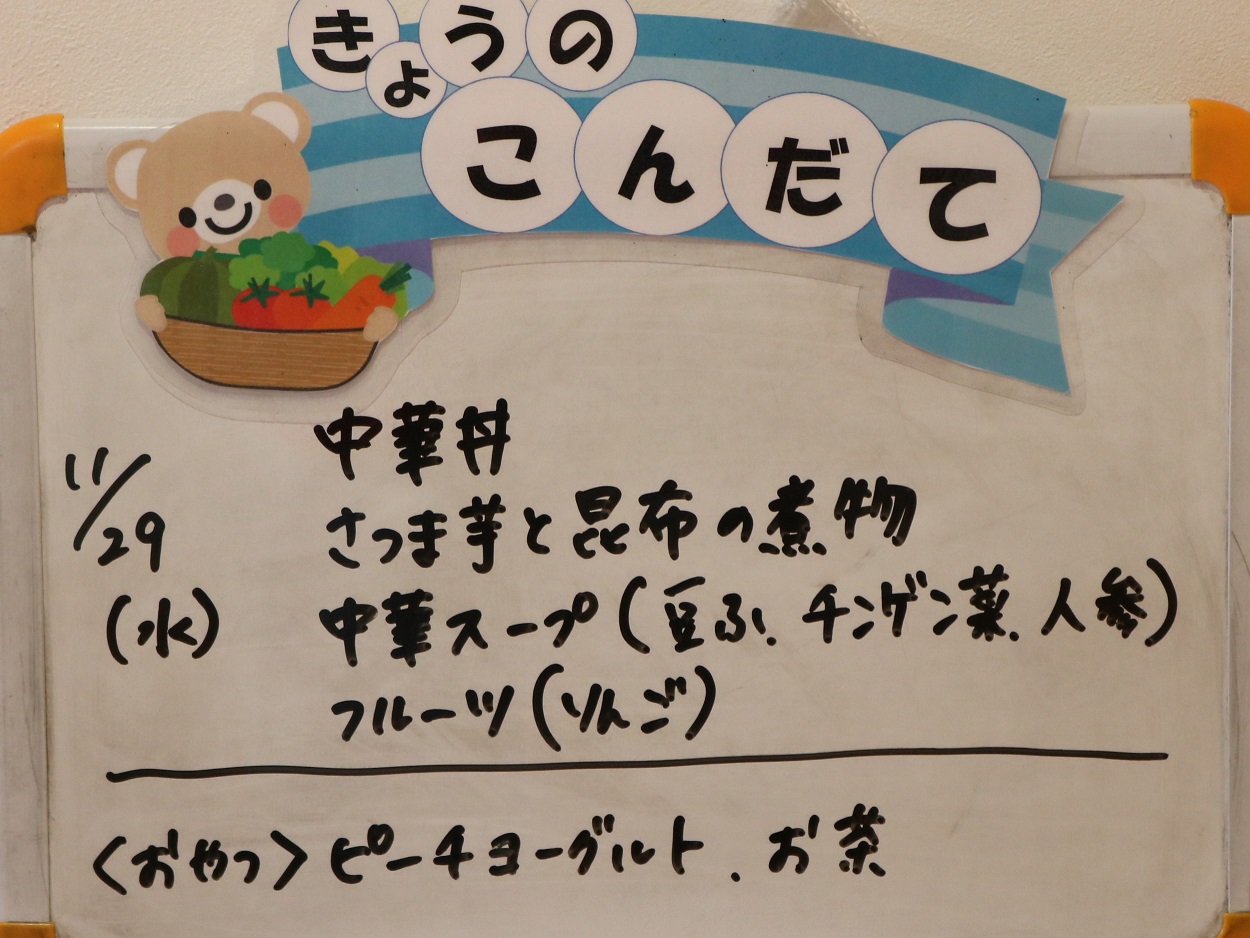 きょうの
こんだて
11/29
(水)
中華丼
さつま芋と昆布の煮物
中華スープ(豆ふ、チンゲン菜、人参)
フルーツ(りんご)
〈おやつ〉ピーチヨーグルト、お茶